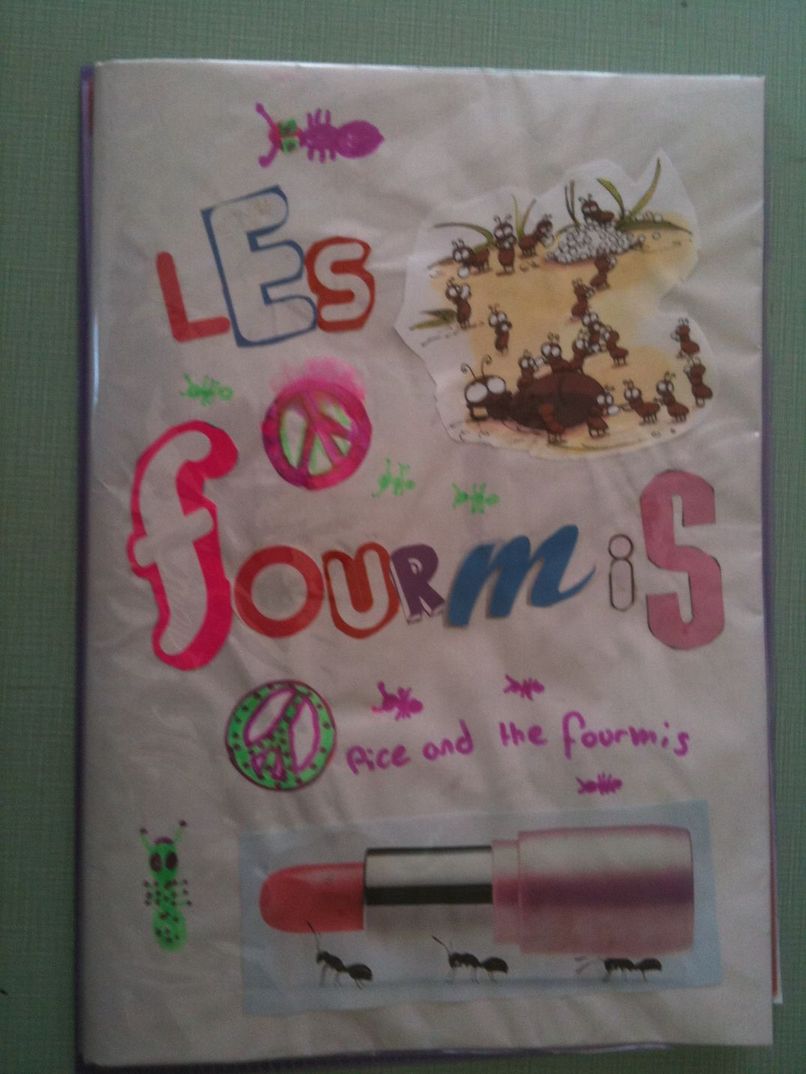 LES
fourmis
Pice and the fourmis